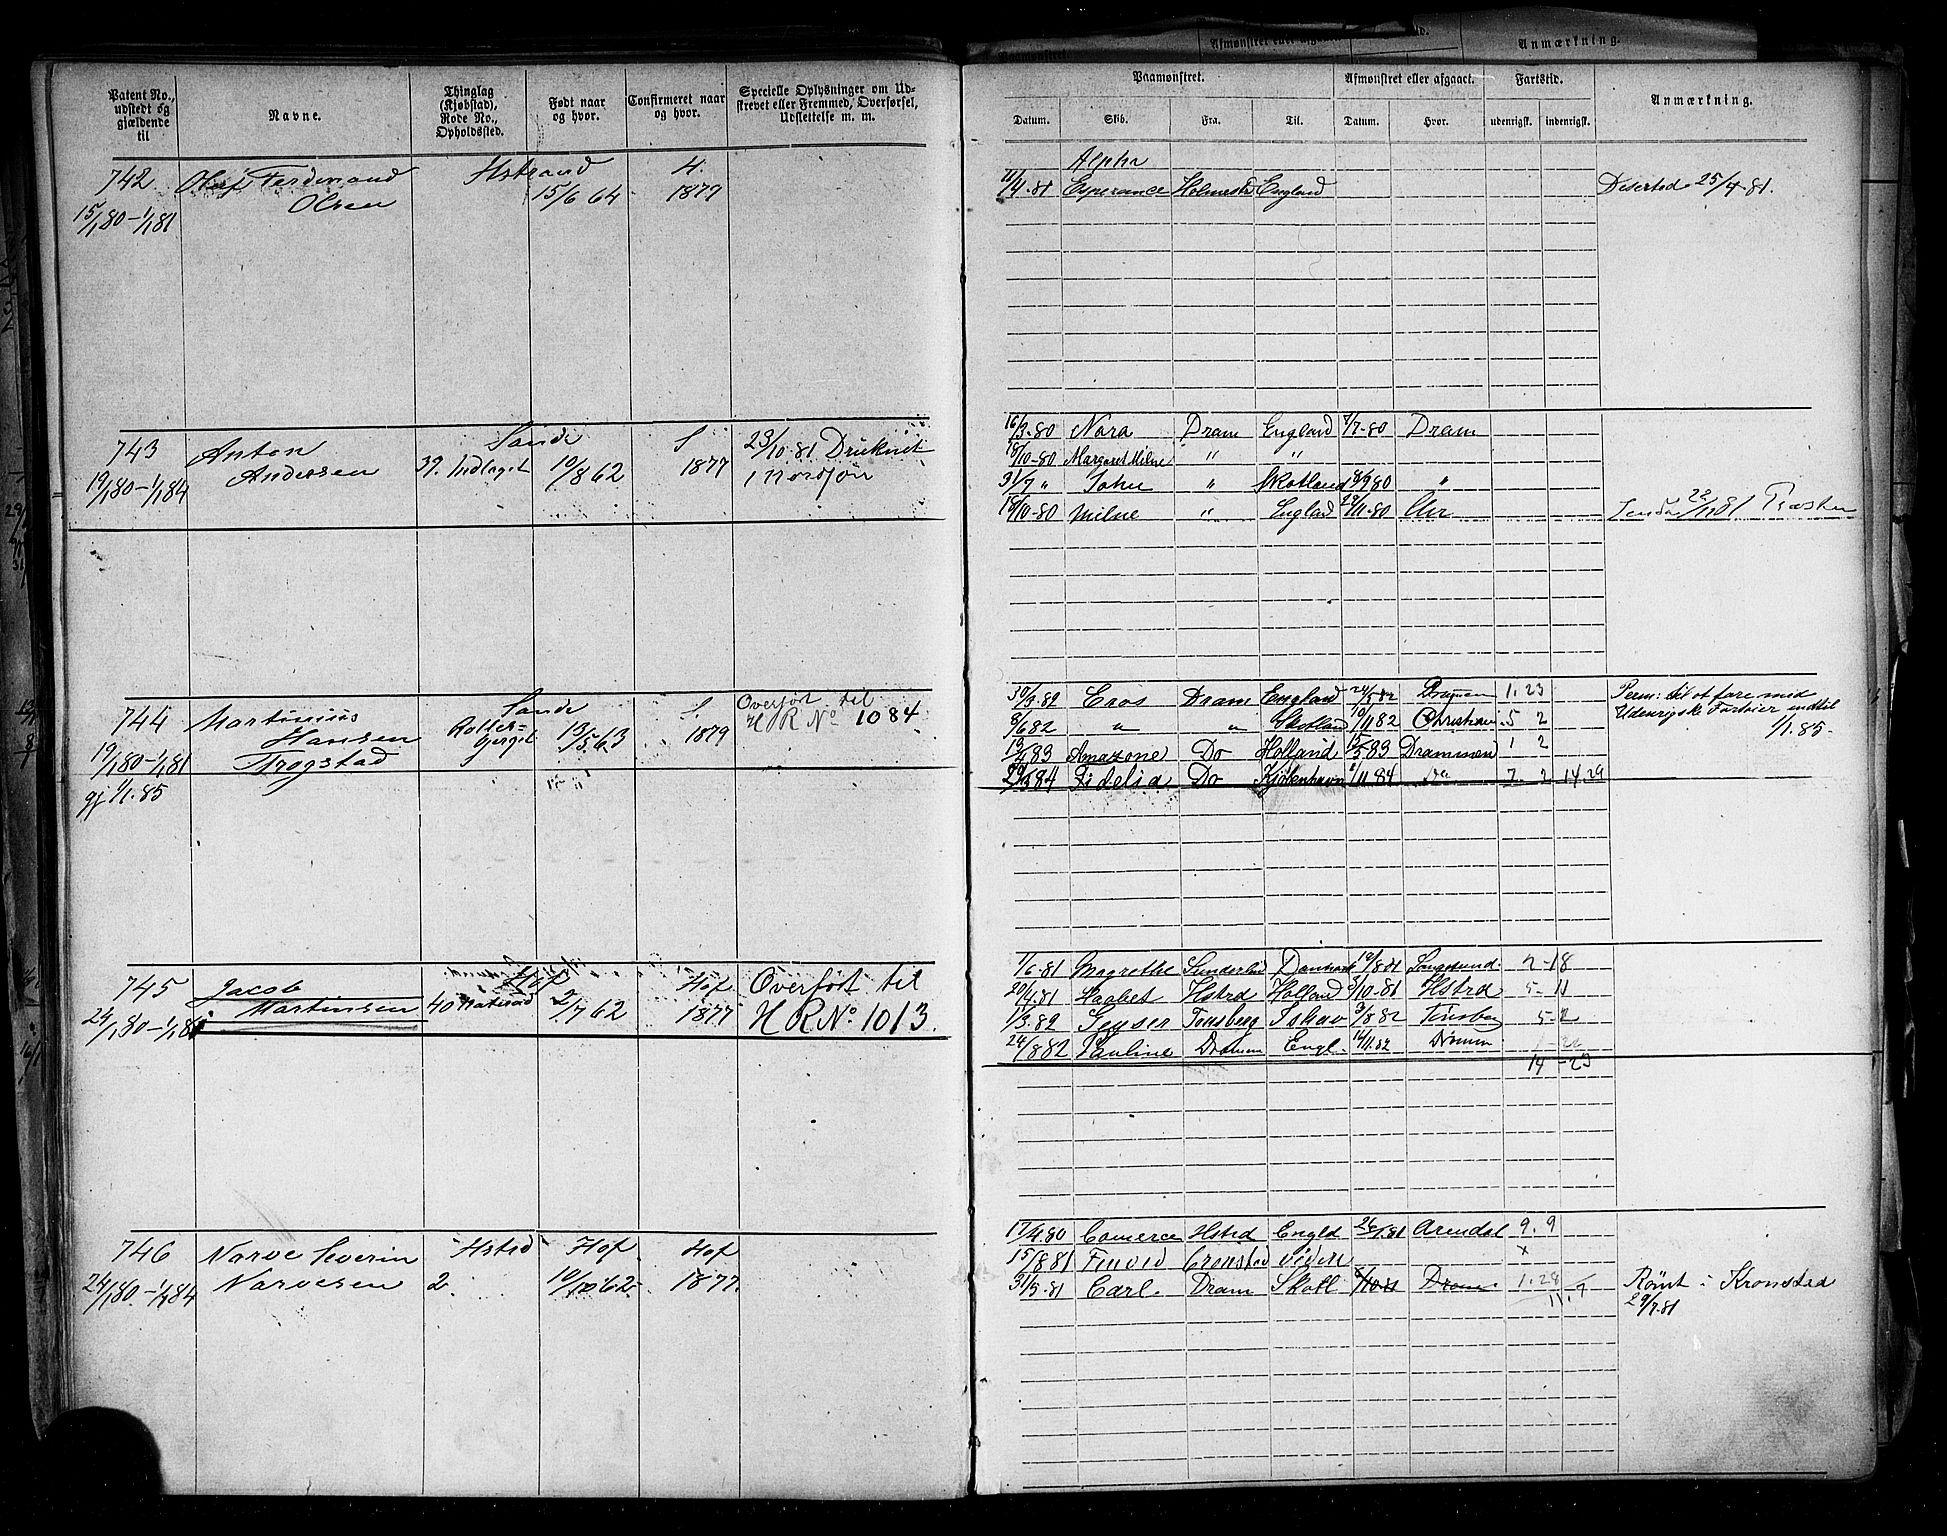 Patent No., udstedt og gjældende til
Navne.
Thinglag (Kjøbstad), Rode No., Opholdssted.
Født naar og hvor.
Confirmeret naar og hvor.
Specielle Oplysninger om Udskrevet eller Fremmed, Overførsel, Udslettelse m. m.
Paamønstret.
Afmønstret eller afgaaet.
Fartstid.
Anmærkning.
Datum. Skib. Fra. Til. Datum. Hvor. udenrigsk. indenrigsk.
742 Olaf Ferdinand Hstrand 4.
Olsen 15/6 64 1877
15/1 80-1/1 81
Alpha
11/4-81 Esperance Holmestr England Deserted 25/4-81.
743 Anton Sande S
Andersen 39. Indlaget 10/8 62 1877 23/10-81 Druknet
19/1 80-1/1 84 i Nordsjøn
16/3-80 Nora Dram England 4/7-80 Dram
18/10-80 Margaret Milne " "
31/7 " " Skotland "
16/10-80 Milne " England 29/11-80
22/11 81
744 Martinius Sande S. Overført til
Hansen 13/5.63 1879 H R No 1084
19/1 80-1/1 81 Trogstad
gj 1/1.85
30/3.82 Eros Dram England Dramen 1. 23 Perm: til at fare med
8/6 82 " " Skotland 10/11 82 Christian. 5 2 Udenrigske Fartøier indtil
1/1.85-
83 Amazone Do Holland 83 Drammen 1 2
84 Fidelia Do Kjøbenhavn 1/11 84 Do 7. 2 14.29
745 Jacob Hof Hof Overført til
Martinsen 40 2/7 62 1877 H R No 1013.
24/1 80-1/1 8
1/6-81 Magrethe Sunderland Danmark /8 81 Langesund. 2-18
20/4.81 Haabet Hstrd Holland /10-81 Hstrd 5-11
1/3.82 Geyser Tønsberg 3/8 82 Tønsberg 5-2
24/8 82 Pauline Dramn Engl. 14/11.82 Drammn
14-23
746 Narve Severin Hstrd Hof Hof
Narvesen 2. 10/10 62 1877.
24/1 80-1/1 84
17/4.80 Comerce Hstrd Engld 26/ 81 Arendal 9.9
15/8 81 Cronstad x
31/5-81 Carl. Dram Skotl Dram 1.28 Rømt i Kronstad
11.7 29/7.81